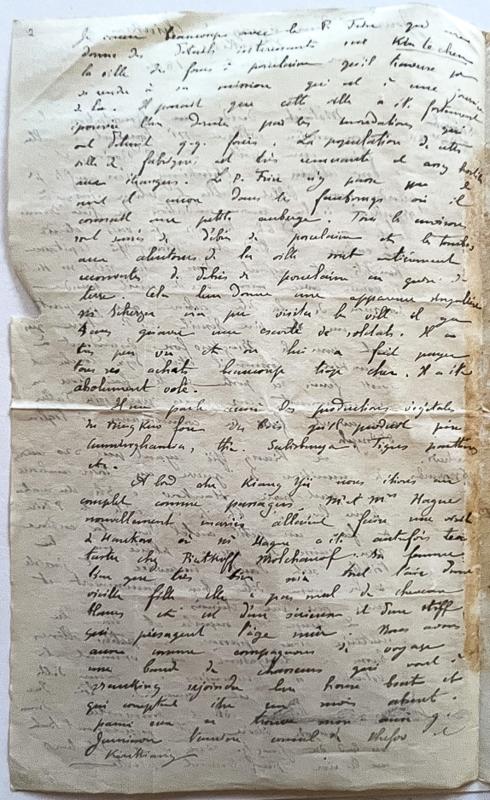 2
Je cause beaucoup avec le P. Frère qui me
donne des détails intéressants sur Kin te chen
la ville des fours à porcelaine qu'il traverse pour
se rendre à sa mission qui est à une journée
de là. Il paraît que cette ville a été fortement
éprouvée l'an dernier par les inondations qui
ont détruit q.q. fours. La population de cette
ville de fabriques est très remuante et assez hostile
aux étrangers. Le P. Frère n'y passe que
nuit et encore dans les faubourgs où il
connait une petite auberge. Tous les environs
sont semés de débris de porcelaine et les tombes
aux alentours de la ville sont entièrement
recouvertes de débris de porcelaine en guise de
terre. Cela leur donne une apparence singulière
Mr Scherzer n'a pu visiter la ville
qu'avec une escorte de soldats. Il a
très peu vu et on lui a fait payer
tous ses achats beaucoup trop cher. Il a été
absolument volé.
Il me parle aussi des productions végétales
du bois qu'il produit pins
Cunninghamia, thé. Salisburya, Tiges
etc.
A bord du Kiang Yü nous étions au
complet comme passagers. Mr et Mrs Hague
nouvellement mariés allaient faire une visite
à Hankow où Mr Hague a été autrefois tea
taster chez Molchanof. Sa femme
bien que très bien mise a l'air d'une
vieille fille elle a pas mal de cheveux
blancs et
qui présagent l'âge mûr. Nous avons
aussi comme compagnons de voyage
une bande de chasseurs qui vont à
rejoindre leur house boat et
qui comptent être un mois absent.
parmi eux se trouve mon ami
Jamieson l'ancien consul de chefoo
Kiukiang